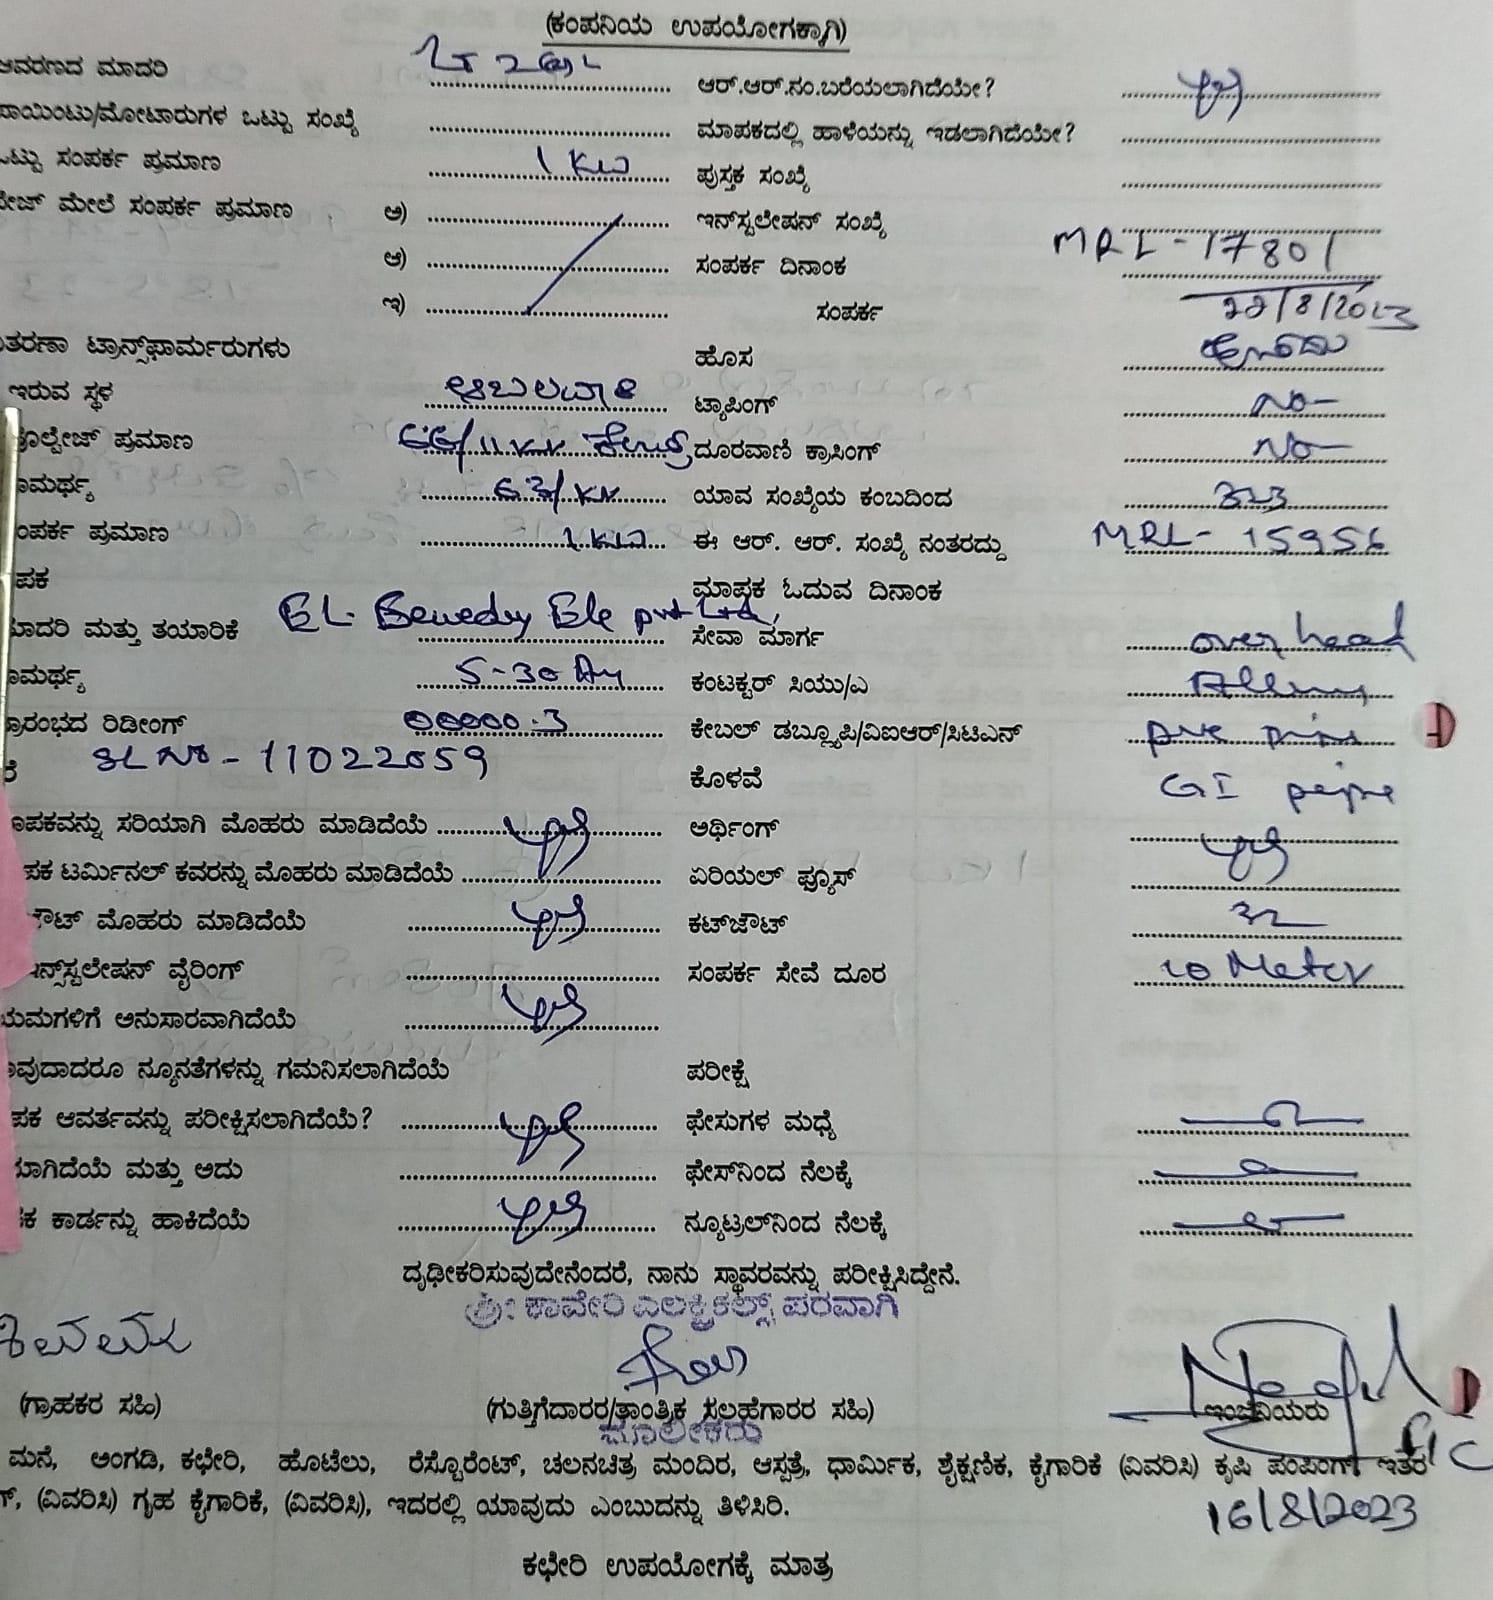 (ಕಂಪನಿಯ ಉಪಯೋಗಕ್ಕಾಗಿ)
ಆವರಣದ ಮಾದರಿ ಆರ್.ಆರ್.ನಂ.ಬರೆಯಲಾಗಿದೆಯೇ?
ಪಾಯಿಂಟು/ಮೋಟಾರುಗಳ ಒಟ್ಟು ಸಂಖ್ಯೆ ಮಾಪಕದಲ್ಲಿ ಹಾಳೆಯನ್ನು ಇಡಲಾಗಿದೆಯೇ?
ಒಟ್ಟು ಸಂಪರ್ಕ ಪ್ರಮಾಣ 1 KW ಪುಸ್ತಕ ಸಂಖ್ಯೆ
ಪೇಜ್ ಮೇಲೆ ಸಂಪರ್ಕ ಪ್ರಮಾಣ ಅ) ಇನ್‌ಸ್ಟಲೇಷನ್ ಸಂಖ್ಯೆ MRL-17801
ಆ) ಸಂಪರ್ಕ ದಿನಾಂಕ 22/8/2023
ಇ) ಸಂಪರ್ಕ
ತರಣಾ ಟ್ರಾನ್ಸ್‌ಫಾರ್ಮರುಗಳು ಹೊಸ ಹೊಸದು
ಇರುವ ಸ್ಥಳ ಆಬಲವಾಡಿ ಟ್ಯಾಪಿಂಗ್ NO-
ವೋಲ್ಟೇಜ್ ಪ್ರಮಾಣ 66/11 KV ಕೇಂದ್ರ ದೂರವಾಣಿ ಕ್ರಾಸಿಂಗ್ NO-
ಾಮರ್ಥ್ಯ 63/KV ಯಾವ ಸಂಖ್ಯೆಯ ಕಂಬದಿಂದ
ಂಪರ್ಕ ಪ್ರಮಾಣ 1 KW ಈ ಆರ್. ಆರ್. ಸಂಖ್ಯೆ ನಂತರದ್ದು MRL-15956
ಪಕ ಮಾಪಕ ಓದುವ ದಿನಾಂಕ
ಮಾದರಿ ಮತ್ತು ತಯಾರಿಕೆ EL- Ele pvt Ltd, ಸೇವಾ ಮಾರ್ಗ over head
ಾಮರ್ಥ್ಯ 5-30 ಕಂಟಕ್ಟರ್ ಸಿಯು/ಎ
ಪ್ರಾರಂಭದ ರಿಡೀಂಗ್ 00000.3 ಕೇಬಲ್ ಡಬ್ಲ್ಯೂಪಿ/ವಿಐಆರ್/ಸಿಟಿಎನ್
SL NO-11022059 ಕೊಳವೆ GI pipe
ಾಪಕವನ್ನು ಸರಿಯಾಗಿ ಮೊಹರು ಮಾಡಿದೆಯೆ ಅರ್ಥಿಂಗ್
ಪಕ ಟರ್ಮಿನಲ್ ಕವರನ್ನು ಮೊಹರು ಮಾಡಿದೆಯೆ ಏರಿಯಲ್ ಫ್ಯೂಸ್
ಔಟ್ ಮೊಹರು ಮಾಡಿದೆಯೆ ಕಟ್‌ಔಟ್ 32
ಇನ್‌ಸ್ಟಲೇಷನ್ ವೈರಿಂಗ್ ಸಂಪರ್ಕ ಸೇವೆ ದೂರ 10 Meter
ಯಮಗಳಿಗೆ ಅನುಸಾರವಾಗಿದೆಯೆ
ಾವುದಾದರೂ ನ್ಯೂನತೆಗಳನ್ನು ಗಮನಿಸಲಾಗಿದೆಯೆ ಪರೀಕ್ಷೆ
ಪಕ ಆವರ್ತವನ್ನು ಪರೀಕ್ಷಿಸಲಾಗಿದೆಯೆ? ಫೇಸುಗಳ ಮಧ್ಯೆ
ಯಾಗಿದೆಯೆ ಮತ್ತು ಅದು ಫೇಸ್‌ನಿಂದ ನೆಲಕ್ಕೆ
ಪಕ ಕಾರ್ಡನ್ನು ಹಾಕಿದೆಯೆ ನ್ಯೂಟ್ರಲ್‌ನಿಂದ ನೆಲಕ್ಕೆ
ದೃಢೀಕರಿಸುವುದೇನೆಂದರೆ, ನಾನು ಸ್ಥಾವರವನ್ನು ಪರೀಕ್ಷಿಸಿದ್ದೇನೆ.
ಶ್ರೀ ಕಾವೇರಿ ಎಲಕ್ಟ್ರಿಕಲ್ಸ್ ಪರವಾಗಿ
(ಗ್ರಾಹಕರ ಸಹಿ) (ಗುತ್ತಿಗೆದಾರರ/ತಾಂತ್ರಿಕ ಸಲಹೆಗಾರರ ಸಹಿ) ಇಂಜಿನಿಯರು
ಮಾಲೀಕರು
ಮನೆ, ಅಂಗಡಿ, ಕಛೇರಿ, ಹೊಟೆಲು, ರೆಸ್ಟೊರೆಂಟ್, ಚಲನಚಿತ್ರ ಮಂದಿರ, ಆಸ್ಪತ್ರೆ, ಧಾರ್ಮಿಕ, ಶೈಕ್ಷಣಿಕ, ಕೈಗಾರಿಕೆ (ವಿವರಿಸಿ) ಕೃಷಿ ಪಂಪಿಂಗ್ ಇತರ
ಗ್, (ವಿವರಿಸಿ) ಗೃಹ ಕೈಗಾರಿಕೆ, (ವಿವರಿಸಿ), ಇದರಲ್ಲಿ ಯಾವುದು ಎಂಬುದನ್ನು ತಿಳಿಸಿರಿ.
16/8/2023
ಕಛೇರಿ ಉಪಯೋಗಕ್ಕೆ ಮಾತ್ರ